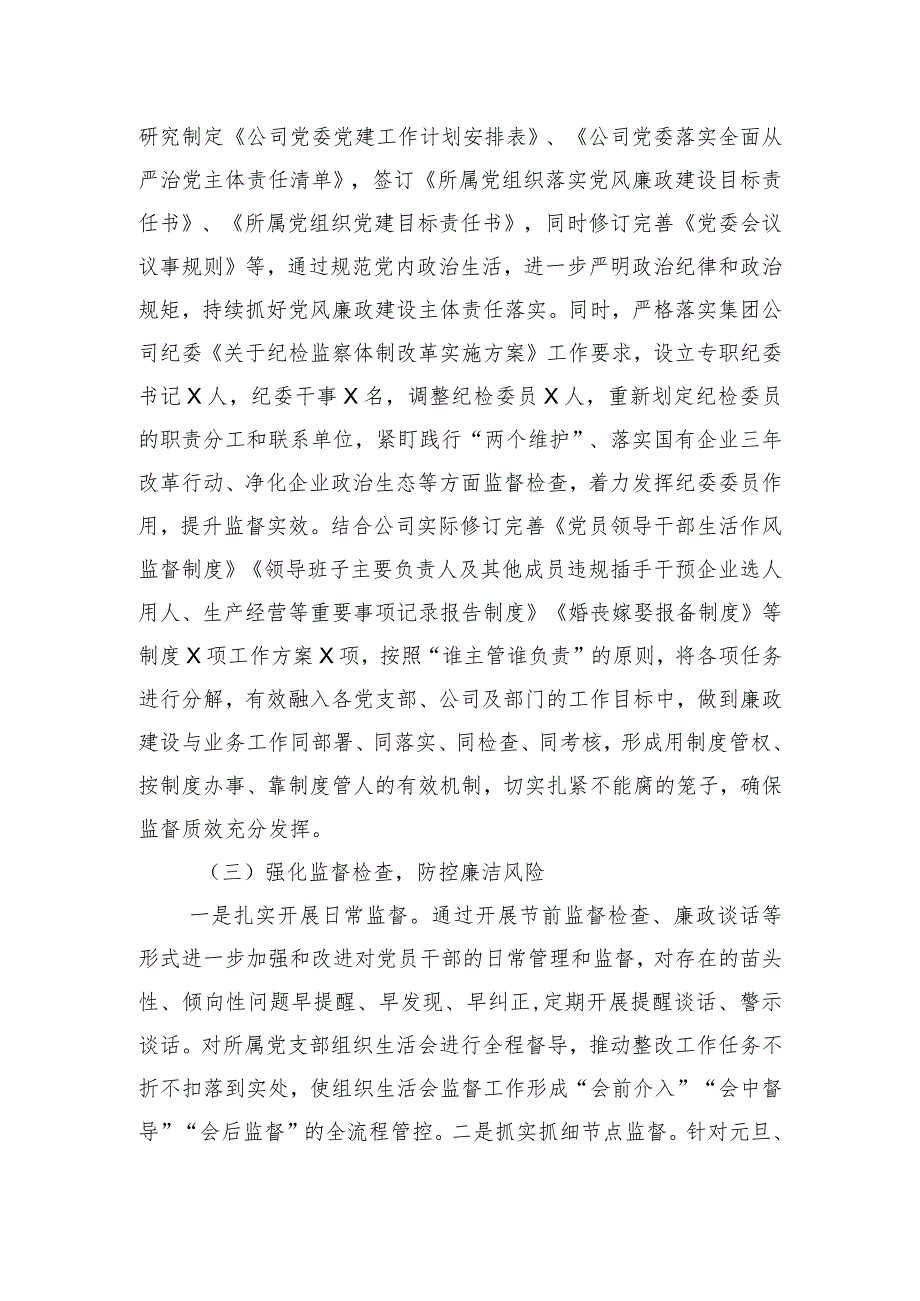 研究制定《公司党委党建工作计划安排表》、《公司党委落实全面从
严治党主体责任清单》，签订《所属党组织落实党风廉政建设目标责
任书》、《所属党组织党建目标责任书》，同时修订完善《党委会议
议事规则》等，通过规范党内政治生活，进一步严明政治纪律和政治
规矩，持续抓好党风廉政建设主体责任落实。同时，严格落实集团公
司纪委《关于纪检监察体制改革实施方案》工作要求，设立专职纪委
书记X人，纪委干事X名，调整纪检委员X人，重新划定纪检委员
的职责分工和联系单位，紧盯践行“两个维护”、落实国有企业三年
改革行动、净化企业政治生态等方面监督检查，着力发挥纪委委员作
用，提升监督实效。结合公司实际修订完善《党员领导干部生活作风
监督制度》《领导班子主要负责人及其他成员违规插手干预企业选人
用人、生产经营等重要事项记录报告制度》《婚丧嫁娶报备制度》等
制度X项工作方案X项，按照“谁主管谁负责”的原则，将各项任务
进行分解，有效融入各党支部、公司及部门的工作目标中，做到廉政
建设与业务工作同部署、同落实、同检查、同考核，形成用制度管权、
按制度办事、靠制度管人的有效机制，切实扎紧不能腐的笼子，确保
监督质效充分发挥。
（三）强化监督检查，防控廉洁风险
一是扎实开展日常监督。通过开展节前监督检查、廉政谈话等
形式进一步加强和改进对党员干部的日常管理和监督，对存在的苗头
性、倾向性问题早提醒、早发现、早纠正,定期开展提醒谈话、警示
谈话。对所属党支部组织生活会进行全程督导，推动整改工作任务不
折不扣落到实处，使组织生活会监督工作形成“会前介入”“会中督
导”“会后监督”的全流程管控。二是抓实抓细节点监督。针对元旦、